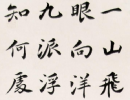 一山飛
眼向洋
九派浮
知何處